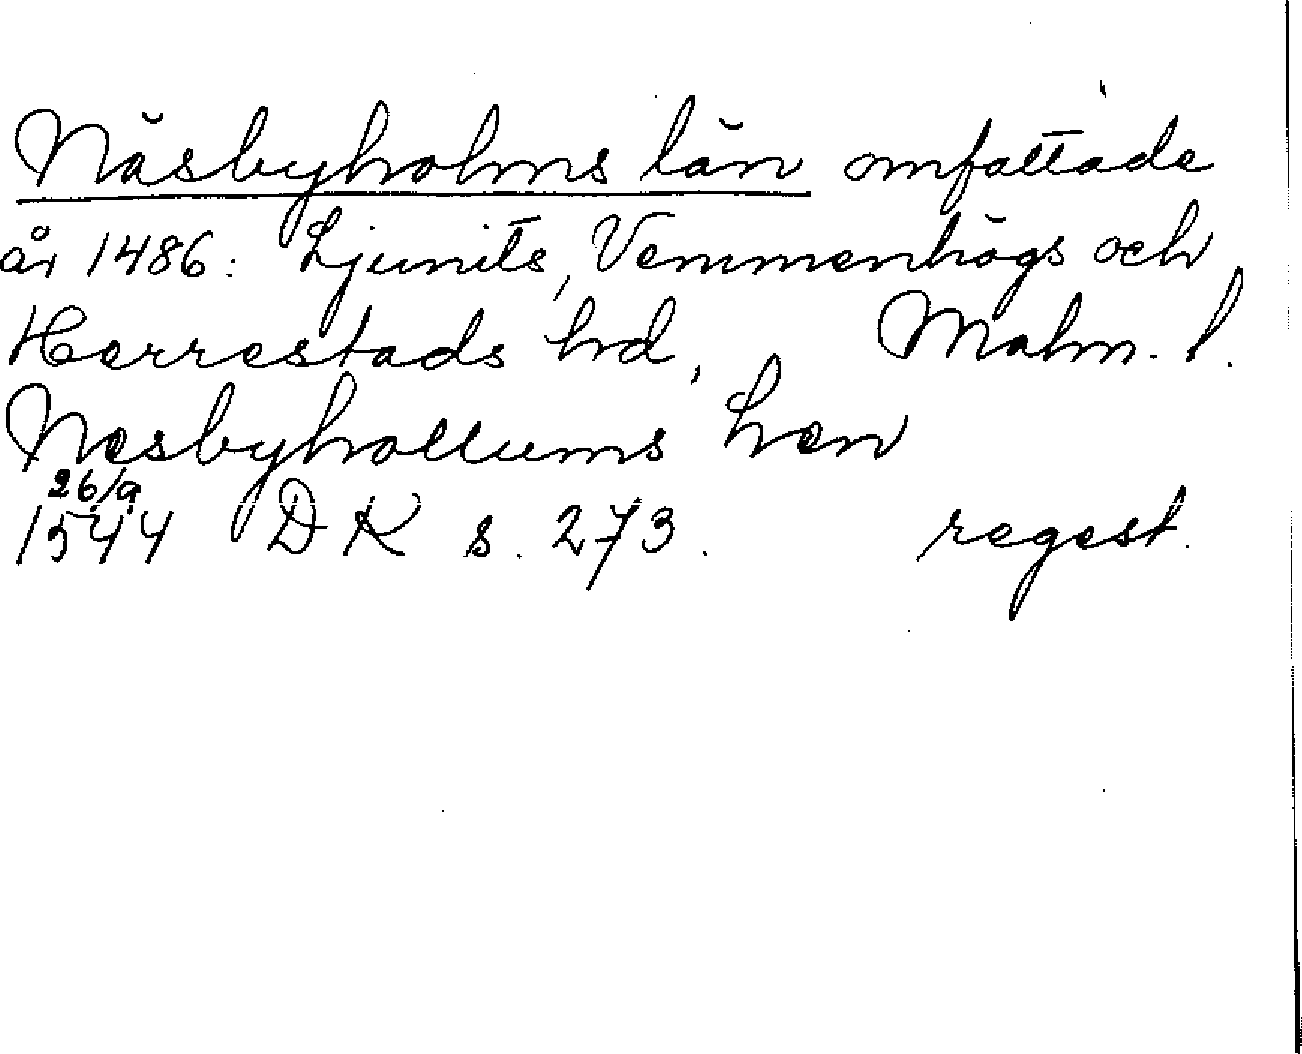 Näsbyholms län omfattade
år 1486: Ljunits, Vemmenhögs och
Herrestads hrd, Malm. l.
Nesbyhollums Len
26/9
1544 DK s. 273. regest.